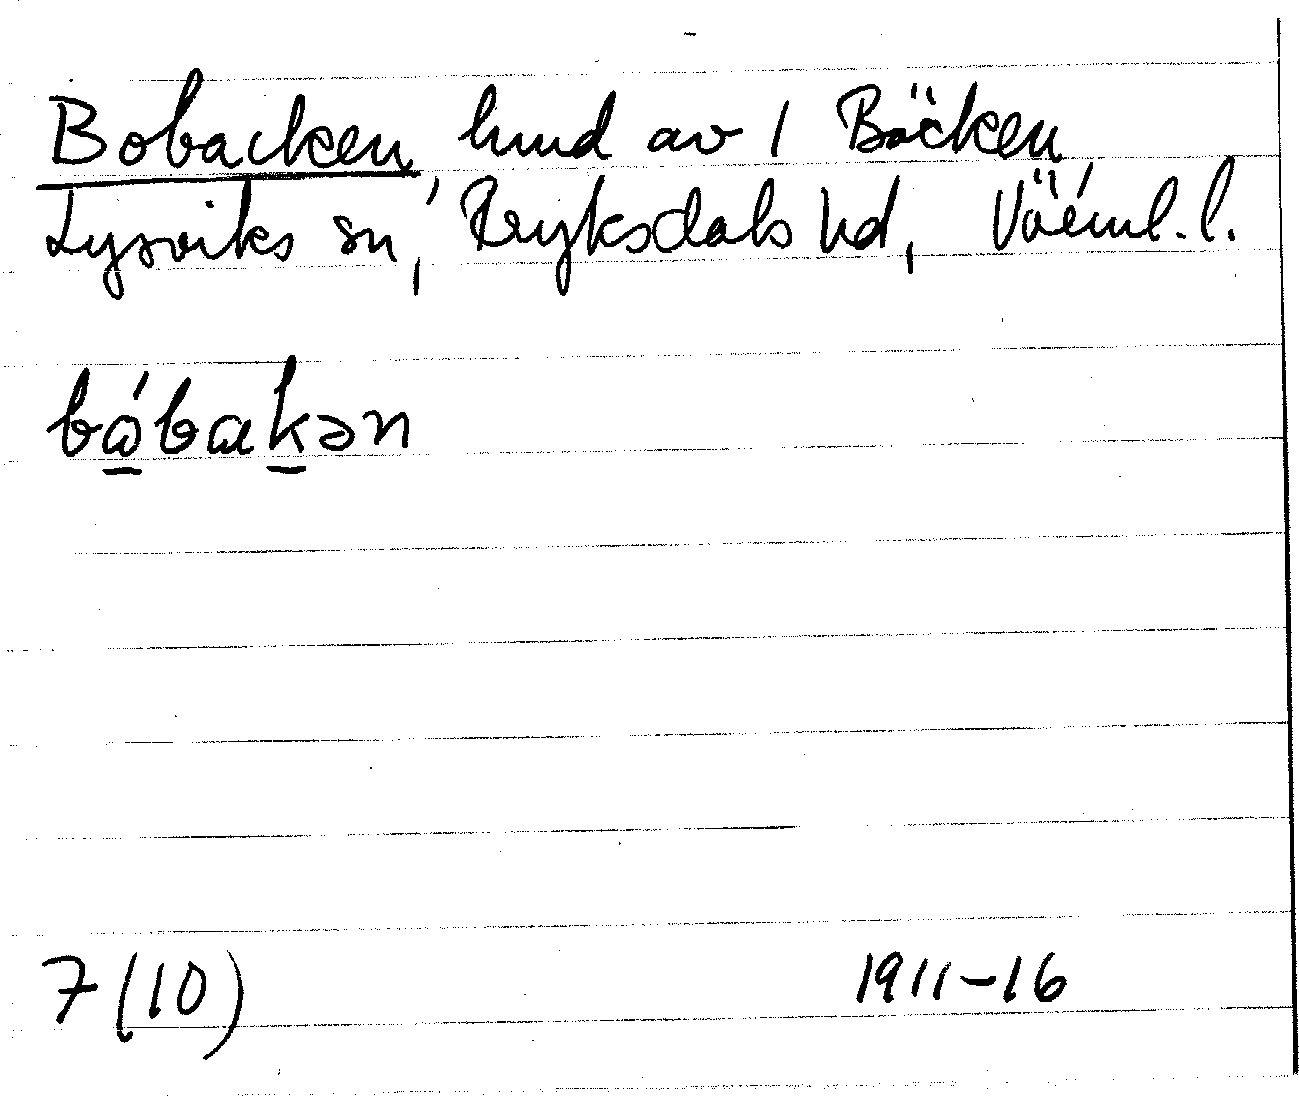 Bobacken, hmd av 1 Bäcken,
Lysviks sn, Fryksdals hd, Värml. l.
bó̱bak̲ən
7 (10) 1911-16